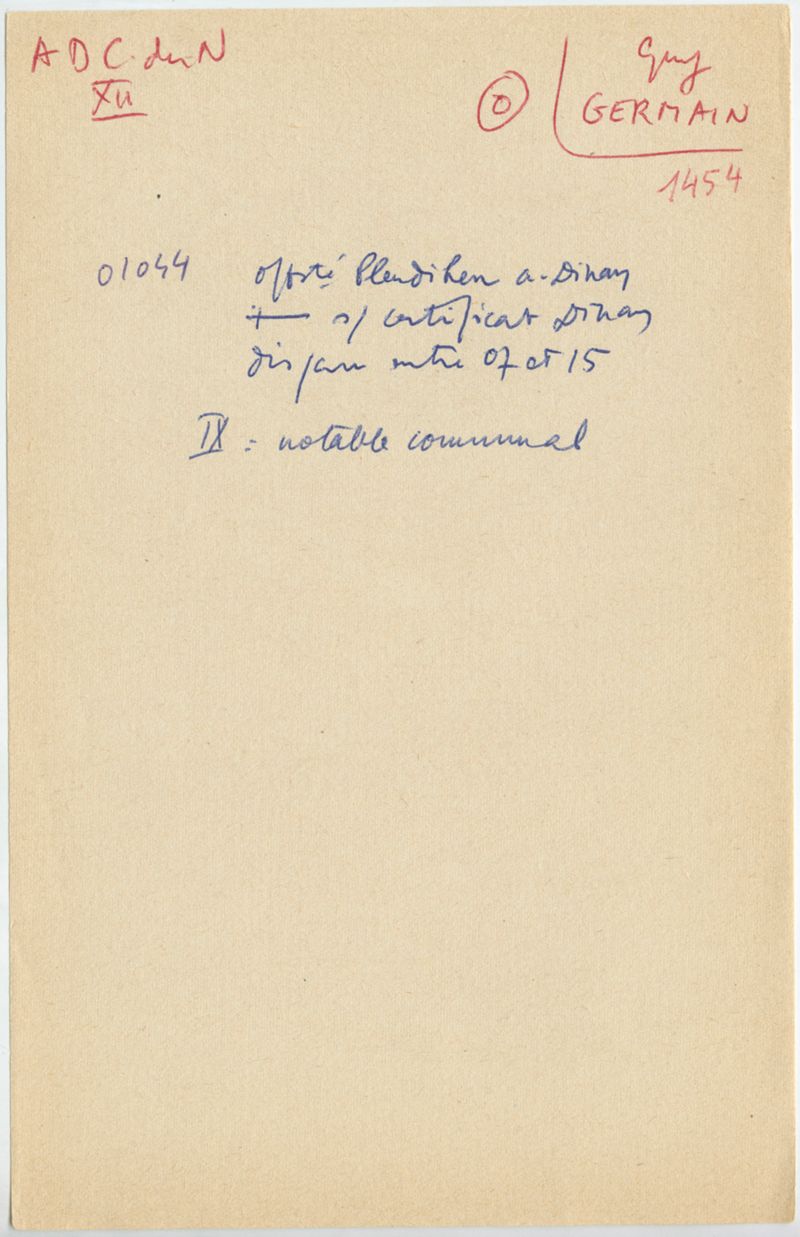 A D C. du N
XII
O
Guy
GERMAIN
1454
01044 Plendihen a. Dinan
s/ certificat Dinan
disparu entre 07 et 15
IX = notable communal